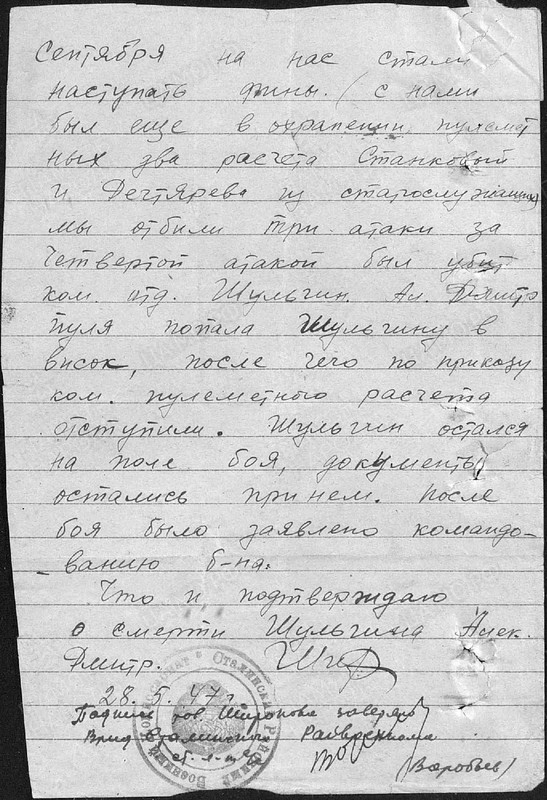 Сентября на нас стали
наступать фины. (с нами
был еще в охранении пулемет
ных два расчета Станковый
и Дегтярева из старослужащих)
мы отбили три атаки за
Четвертой атакой был убит
ком. отд. Шульгин. Ал. Дмитр
пуля попала Шульгину в
висок, после чего по приказу
ком. пулеметного расчета
отступили. Шульгин остался
на поле боя, документы
остались при нем. После
боя было заявлено командо-
ванию б-на.
Что и подтверждаю
о смерти Шульгина Алек.
Дмитр.
28.5.47г
Подпись тов Широкова заверяю
Врид Сталинского Райвоенкома
(Воробьев)